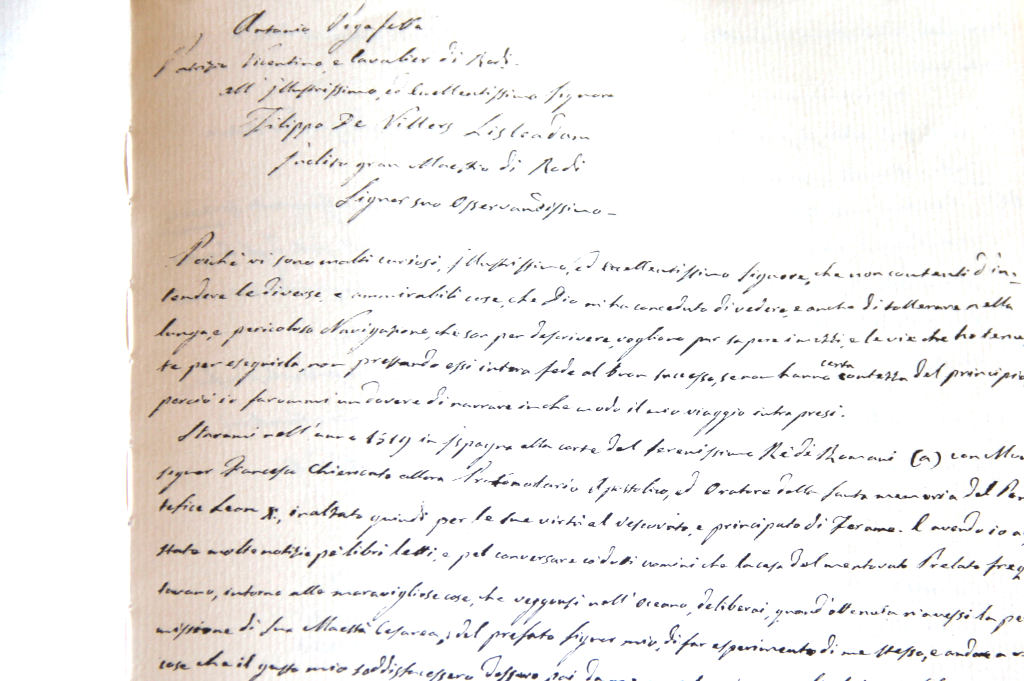 Antonio Pigafetta
Patrizio Vicentino e Cavalier di Rodi.
all' jllustrissimo, ed Eccellentissimo Signore
Filippo De Villers Lisleadam
jnclito gran Maestro di Rodi
Signor suo Osservandissimo_
Poichè vi sono molti curiosi, jllustrissimo, ed Eccellentissimo Signore, che non contenti d'in-
tendere le diverse, e ammirabili cose, che Dio mi ha conceduto di vedere, e anche di tollerare nella
lunga, e pericolosa Navigazione, che son per descrivere, vogliono pur sapere i mezzi, e le vie che ho tenu
te per eseguirla, non prestando essi intera fede al buon successo, se non hanno certa contezza del principio
perciò io farommi un dovere di narrare in che modo il mio viaggio intrapresi.
Stavami nell'anno 1519 in jspagna alla corte del serenissimo Rè de' Romani (a) con Mon
signor Francesco Chiericato allora Protonotario Apostolico, ed Oratore della santa memoria del Pon
tefice Leon X., inalzato quindi per le sue virtù al vescovato, e principato di Teramo. E avendo io a
state molte notizie pe' libri letti, e pel conversare co' dotti uomini che la casa del mentovato Prelato freq
tavano, intorno alle maravigliose cose, che veggonsi nell' Oceano, deliberai, quand'ottenuta n'avessi la pe
missione di sua Maestà Cesarea, e del prefato signor mio, di far esperimento di me stesso, e andare a v
cose che il gusto mio soddisfacessero